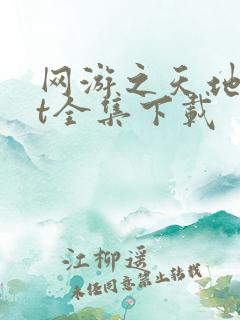 网游之天地
t全集下载
江柳遥
未经同意禁止转载